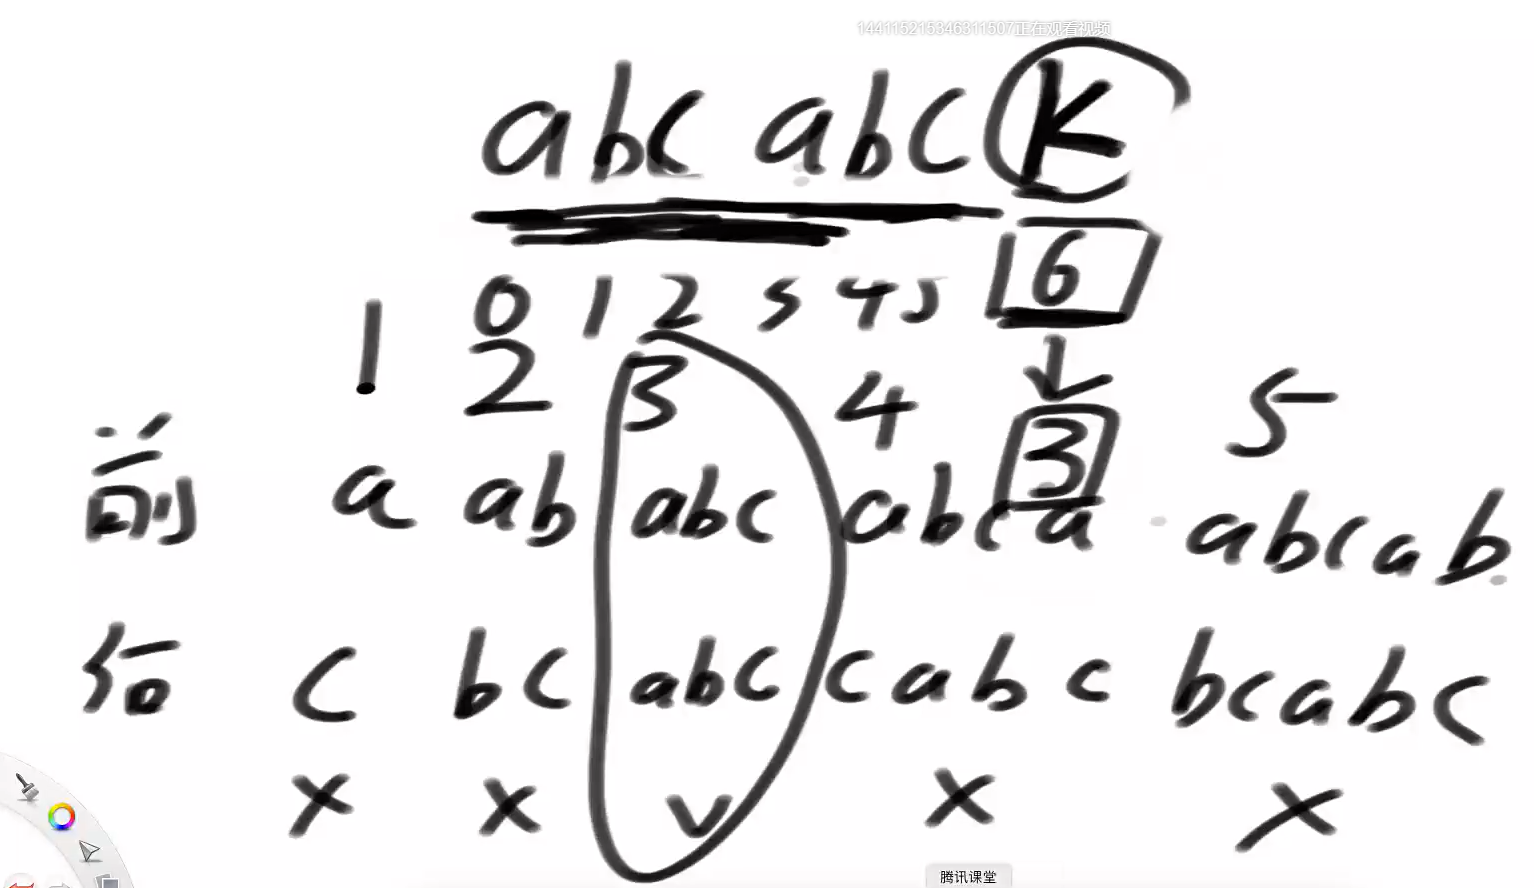 144115215346311507正在观看视频
abc abc k
0 1 2 3 4 5 6
1 2 3 4 3 5
前 a ab abc abca abcab
后 c bc abc cabc bcabc
x x v x x
腾讯课堂